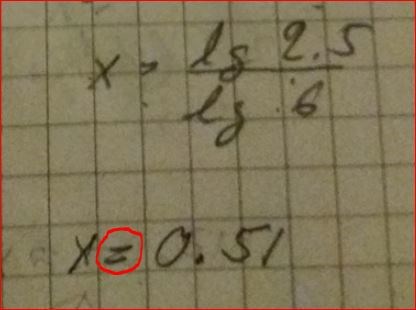 x = lg 2.5 / lg 6
x = 0.51